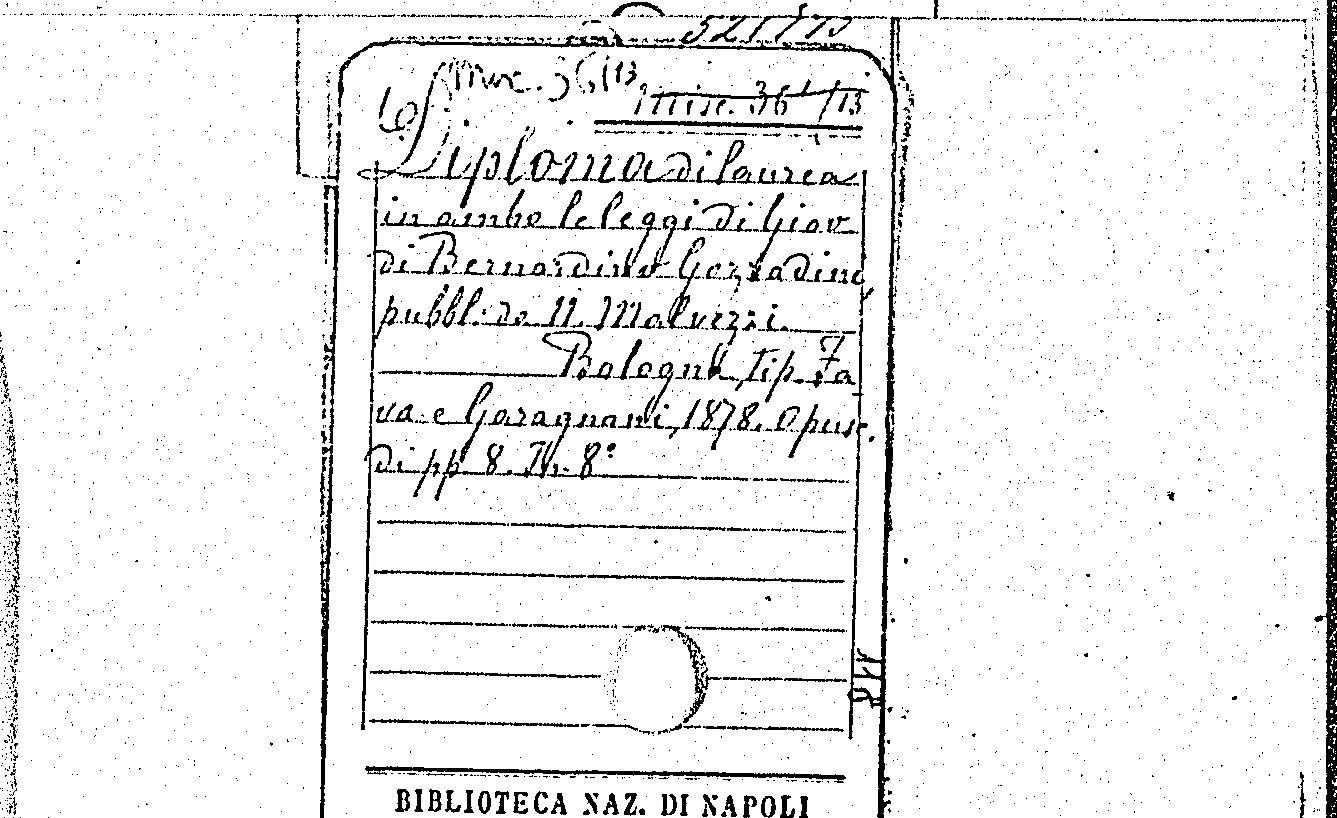 Misc. 36/13
misc. 36 /13
Diploma di laurea
in ambo le leggi di Giov
di Bernardino Gozzadini,
pubbl. da N. Malvezzi.
Bologna, tip. Fa
va e Garagnani, 1878. Opusc.
di pp. 8. In 8º
BIBLIOTECA NAZ. DI NAPOLI